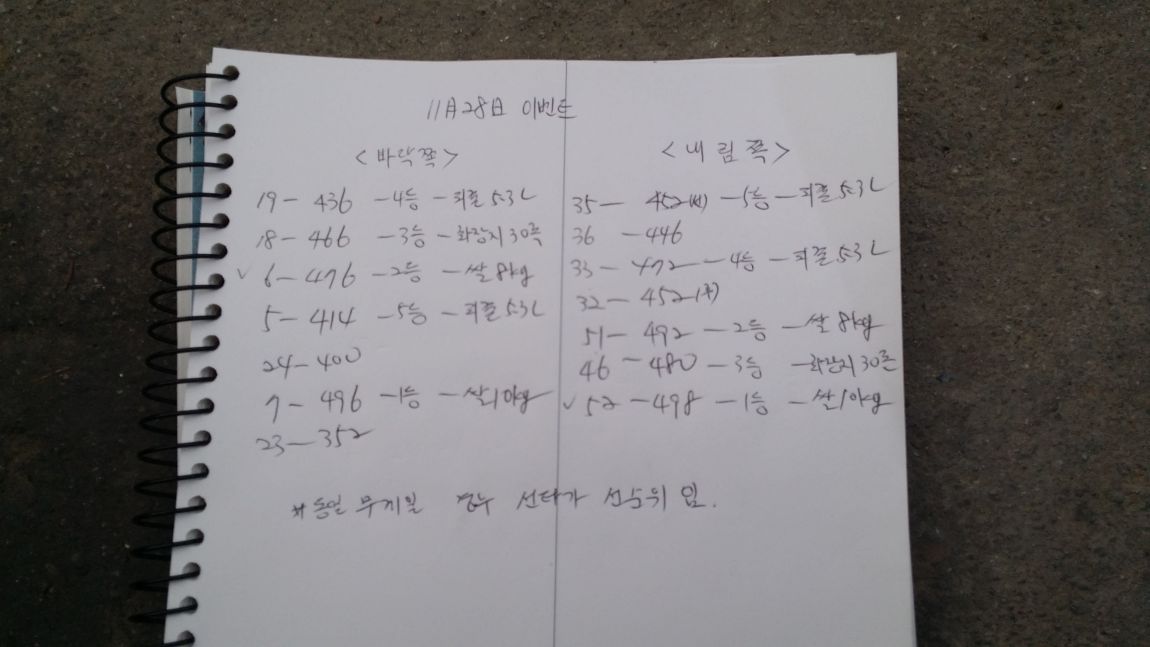 11月28日 이벤트
<바닥쪽>
19 - 436 - 4등 - 피죤 5.3L
18 - 466 - 3등 - 화장지 30롤
✓ 6 - 476 - 2등 - 쌀 8kg
5 - 414 - 5등 - 피죤 5.3L
24 - 400
7 - 496 - 1등 - 쌀 10kg
23 - 352
<내림쪽>
35 - 452(선) - 5등 - 피죤 5.3L
36 - 446
33 - 472 - 4등 - 피죤 5.3L
32 - 452(후)
51 - 492 - 2등 - 쌀 8kg
46 - 480 - 3등 - 화장지 30롤
✓ 52 - 498 - 1등 - 쌀 10kg
※동일 무게일 경우 선타가 선순위 임.